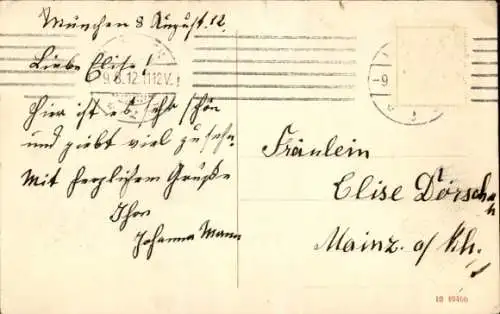 München 8 August. 12.
Liebe Elise!
9.8.12.11-12V.
Hier ist es sehr schön
und giebt viel zu sehn.
Mit herzlichem Gruße
Ihre
Johanna Mann
-9.
Fräulein
Elise Dörsch
Mainz. a/Rh.
10 19466